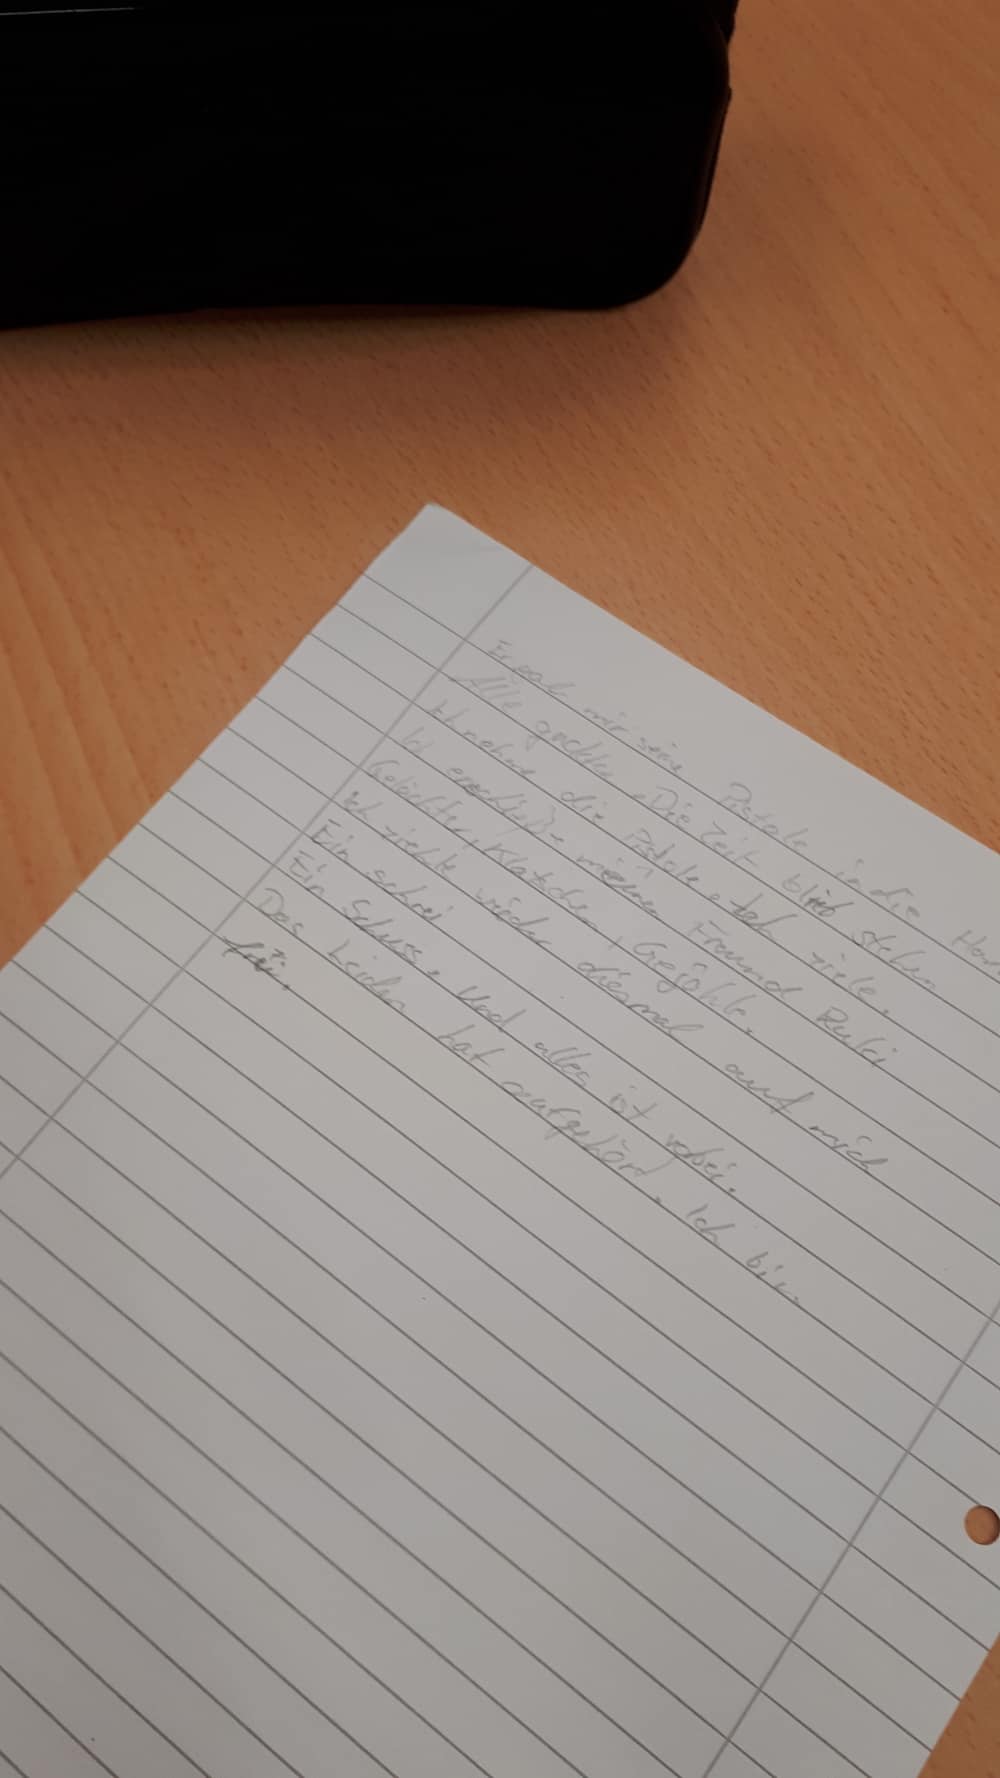 Er gab mir seine Pistole in die Han
Alle guckten. Die Zeit blieb stehen
Ich nehme die Pistole. Ich ziele.
Ich erschieße meinen Freund Rufi
Gelächter, Klatschen, Gejohle.
Ich ziehle wieder diesmal auf mich
Ein schrei
Ein Schuss. Und alles ist vorbei.
Das leiden hat aufgehört. Ich bin
frei.